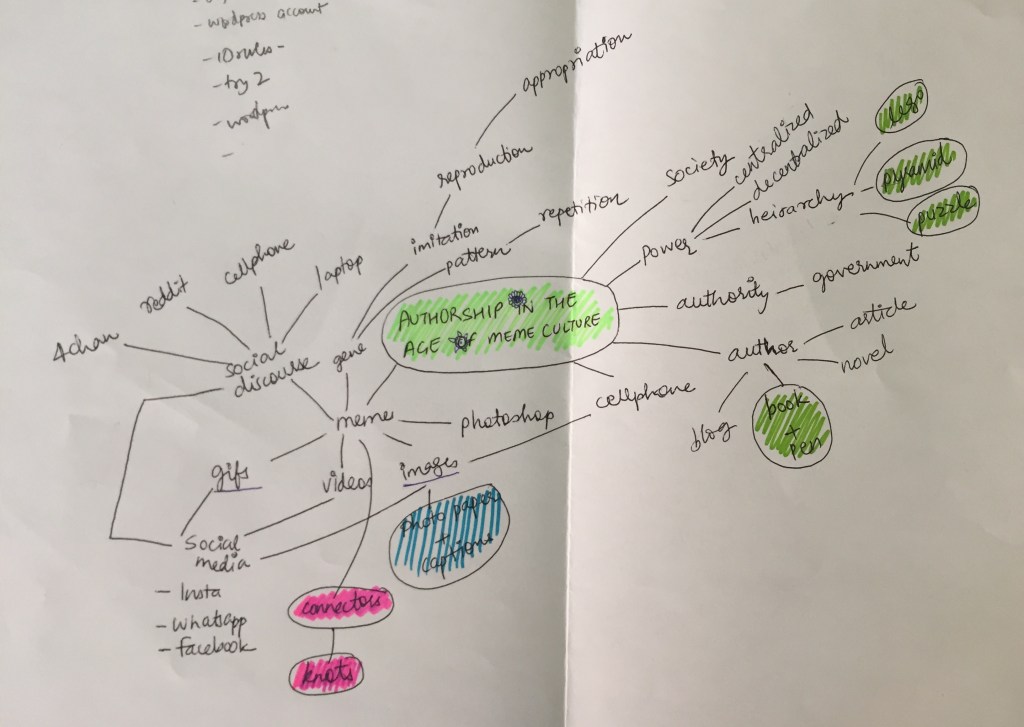 - wordpress account
- 10 rules -
- try 2
- wordpress
-
appropriation
reproduction
imitation
pattern
repetition
society
centralized
decentralized
power
heirarchy
lego
pyramid
puzzle
authority
government
author
article
novel
book
+
pen
blog
cellphone
AUTHORSHIP IN THE
AGE OF MEME CULTURE
gene
cellphone
laptop
reddit
4chan
social
discourse
meme
photoshop
gifs
videos
images
photo paper
+
captions
social
media
- Insta
- whatsapp
- facebook
connectors
knots